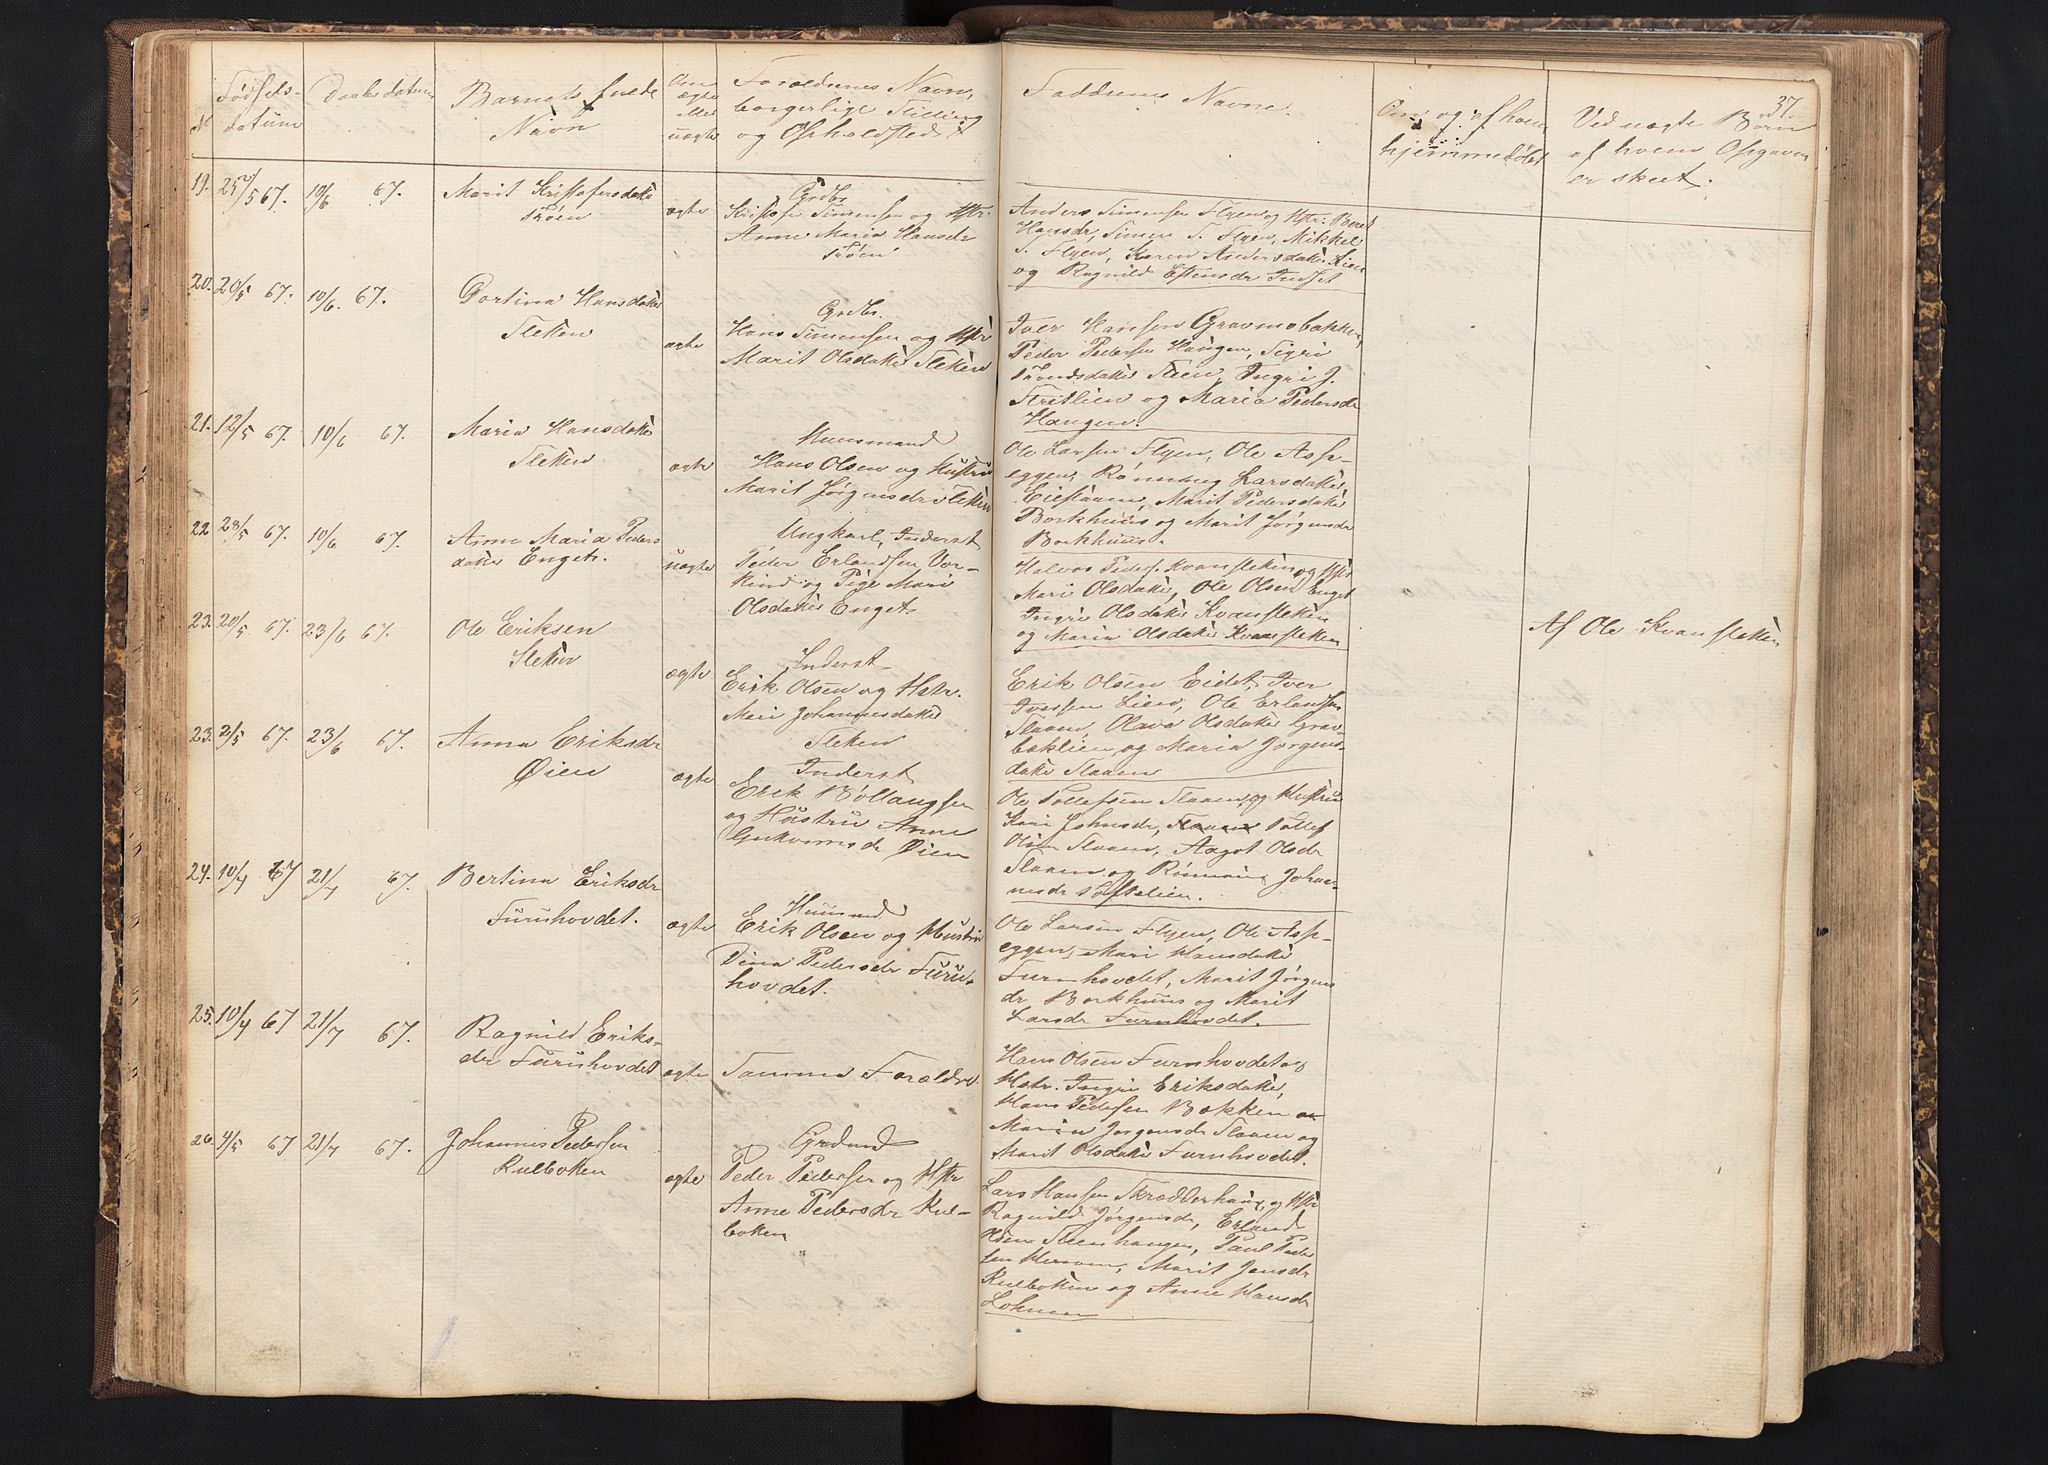 37.
N
Fødsels-
datum
Daabsdatum
Barnets fulde
Navn
Om
ægte
eller
uægte
Forældrenes Navn,
borgerlige Stilling
og Opholdsted
Faddrenes Navne.
Om og af hvem
hjemmedøbt
Ved uægte Børn
af hvem Opgaven
er skeet.
19. 25/5 67. 10/6 67. Marit Kristofersdatter
Trøen
ægte
Grdbr.
Kristofer Simensen og Hstr.
Anne Maria Hansdr
Trøen
Anders Simensen Flyen og Hstr. Beret
Hansdr, Simen S. Flyen, Mikkel
S. Flyen, Karen Andersdatter Lien
og Ragnild Estensdr Indset
20. 20/5 67. 10/6. 67. Gortina Hansdatter
Steken
ægte
Grdbr.
Hans Simensen og Hstr
Marit Olsdatter Steken
Iver Hansen Gravmobakken,
Peder Pedersen Haugen, Sigri
Trondsdatter Steen, Ingri J.
Stretlien og Maria Pedersdr
Haugen.
21. 12/5 67. 10/6 67. Maria Hansdatter
Steken
ægte
Huusmand
Hans Olsen og Hustru
Marit Jørgensdr Steken
Ole Larsen Flyen, Ole Asp-
eggen, Rønnaug Larsdatter
Eiestuen, Marit Pedersdatter
Borkhuus og Marit Jørgensdr
Borkhuus.
22 28/5 67. 10/6 67. Anne Maria Peders
datter Enget.
uægte
Ungkarl, Inderst
Peder Erlandsen Vor-
kind og Pige Mari
Olsdatter Enget
Halvor Peders. Kvansteken og Hstr
Mari Olsdatter, Ole Olsen Enget
Ingri Olsdatter Kvansteken
og Maria Olsdatter Kvansteken
Af Ole Kvansteken
23. 20/5 67. 23/6 67. Ole Eriksen
Steken
ægte
Inderst
Erik Olsen og Hstr.
Mari Johannesdatter
Steken
Erik Olsen Eidet, Iver
Iversen Lien, Ole Erlandsen
Staaen, Olava Olsdatter Grav-
baklien og Maria Jørgens-
datter Staaen
23. 2/5 67. 23/6 67. Anna Eriksdr
Øien
ægte
Inderst
Erik Bóllaugsen
og Hustru Anne
Øien
Ole Tollefsen Staaen, og Hustru
Kari Johnsdr, Staaen Tollef
Olsen Staaen, Aagot Olsdr
Staaen og Rønnaug Johan-
nesdr Toftelien.
24. 10/4 67 21/7 67. Bertina Eriksdr
Furuhovdet.
ægte
Huusmd
Erik Olsen og Hustru
Dina Pedersdr Furu-
hovdet.
Ole Larsen Flyen, Ole Asp-
eggen, Mari Hansdatter
Furuhovdet, Marit Jørgens
dr Borkhuus og Marit
Larsdr Furuhovdet.
25. 10/4 67 21/7 67. Ragnild Eriks-
dr Furuhovdet
ægte
Samme Forældre.
Hans Olsen Furuhovdet og
Hstr. Ingri Eriksdatter,
Hans Pedersen Bakken
Maria Jørgensdr Staaen og
Marit Olsdatter Furuhovdet.
26. 4/5 67 21/7 67. Johannes Pedersen
Kulboken
ægte
Grdmd
Peder Pedersen og Hstr
Anne Pedersdr Kul-
boken
Lars Hansen Skrædderhaug og Hstr
Ragnild Jørgensdr, Erland
Olsen Steenhaugen, Paul Peder
sen, Marit Jensdr
Kulboken og Anne Hansdr